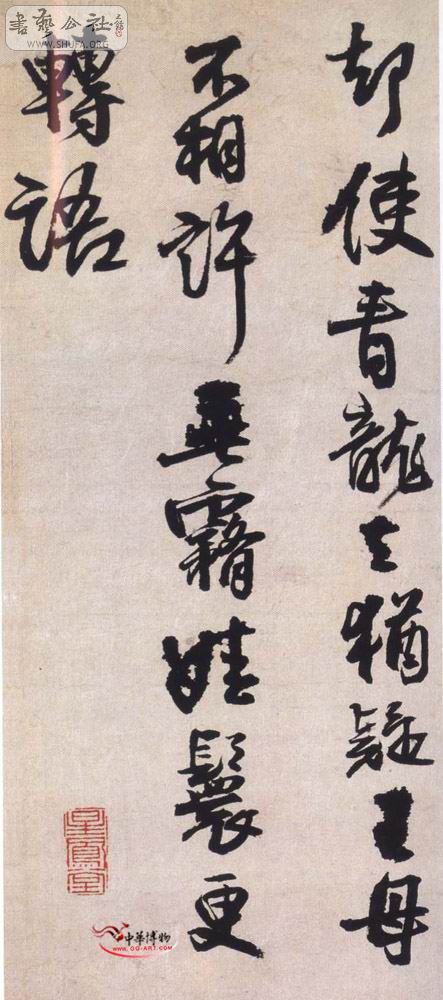 却使青龍去猶疑王母
不相許垂霧娃鬟更
轉語
書藝公社
WWW.SHUFA.ORG
星鳳堂
中華博物
WWW.GG-ART.COM